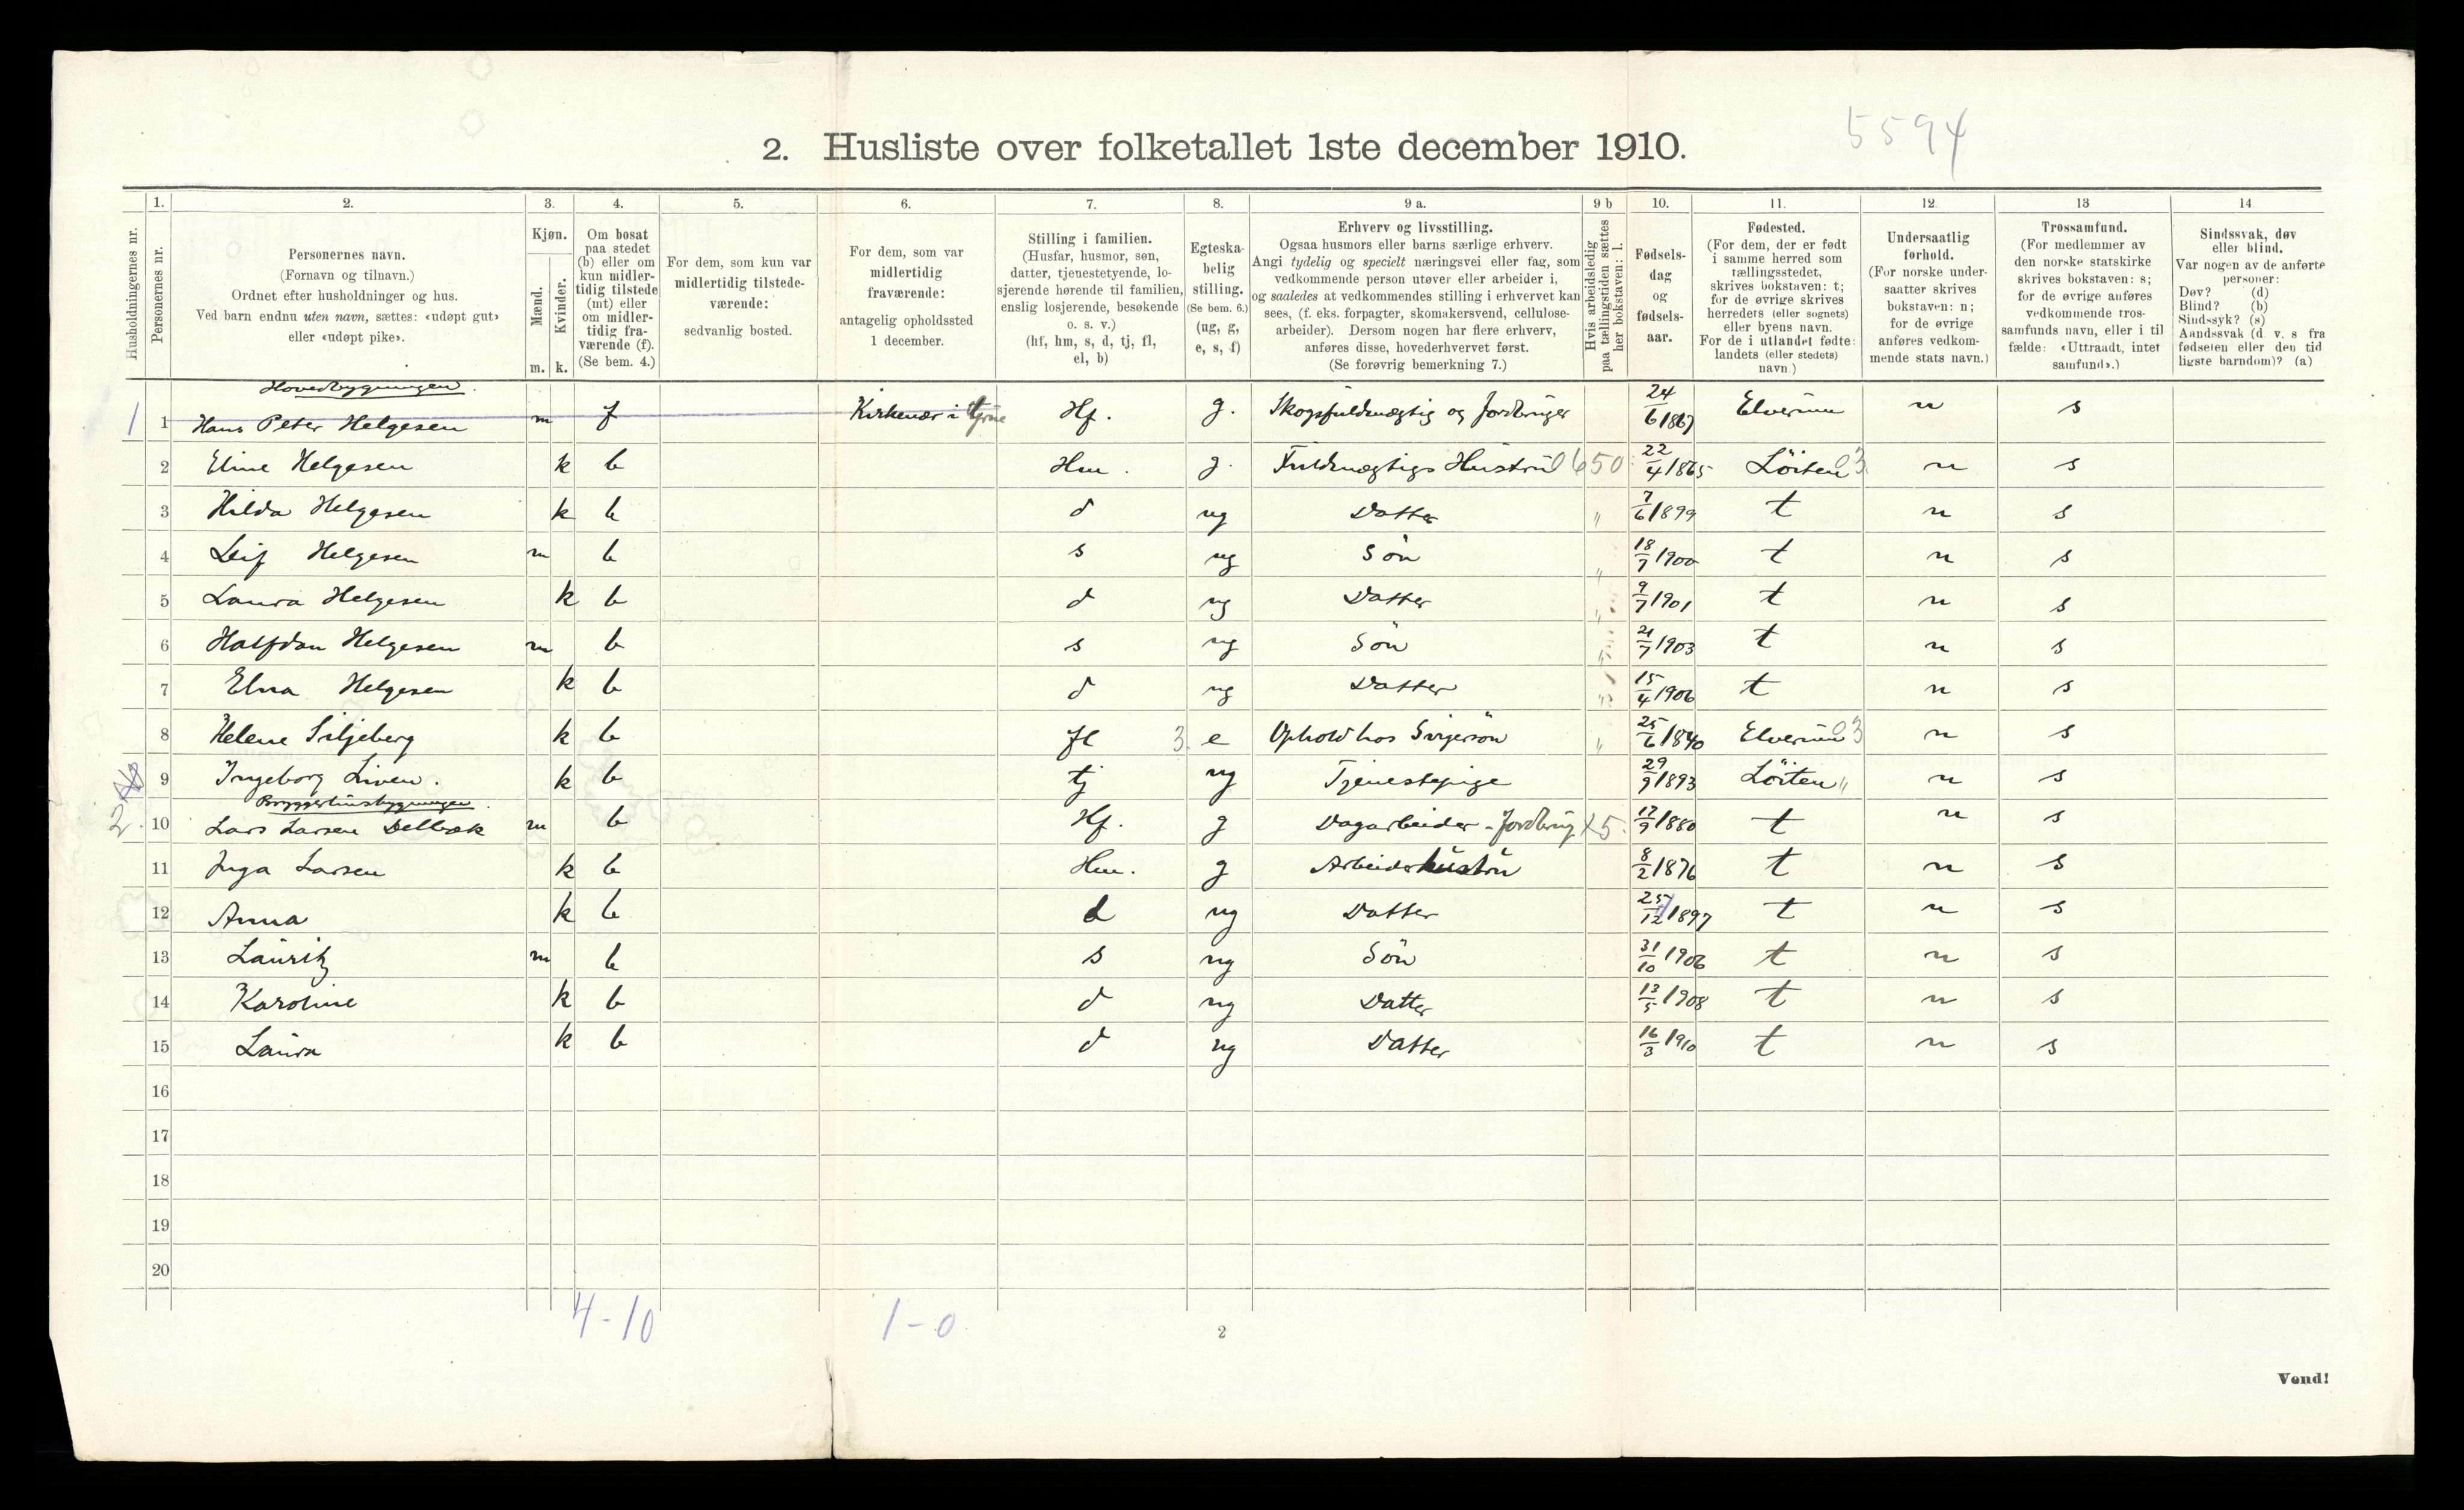 5594
2. Husliste over folketallet 1ste december 1910.
Husholdningernes nr.
1. Personernes nr.
2. Personernes navn.
(Fornavn og tilnavn.)
Ordnet efter husholdninger og hus.
Ved barn endnu uten navn, sættes: «udøpt gut»
eller «udøpt pike».
3. Kjøn.
Mænd. m.
Kvinder. k.
4. Om bosat
paa stedet
(b) eller om
kun midler-
tidig tilstede
(mt) eller
om midler-
tidig fra-
værende (f).
(Se bem. 4.)
5. For dem, som kun var
midlertidig tilstede-
værende:
sedvanlig bosted.
6. For dem, som var
midlertidig
fraværende:
antagelig opholdssted
1 december.
7. Stilling i familien.
(Husfar, husmor, søn,
datter, tjenestetyende, lo-
sjerende hørende til familien,
enslig losjerende, besøkende
o. s. v.)
(hf, hm, s, d, tj, fl,
el, b)
8. Egteska-
belig
stilling.
(Se bem. 6.)
(ug, g,
e, s, f)
9 a. Erhverv og livsstilling.
Ogsaa husmors eller barns særlige erhverv.
Angi tydelig og specielt næringsvei eller fag, som
vedkommende person utøver eller arbeider i,
og saaledes at vedkommendes stilling i erhvervet kan
sees, (f. eks. forpagter, skomakersvend, cellulose-
arbeider). Dersom nogen har flere erhverv,
anføres disse, hovederhvervet først.
(Se forøvrig bemerkning 7.)
9 b Hvis arbeidsledig
paa tællingstiden sættes
her bokstaven: l.
10. Fødsels-
dag
og
fødsels-
aar.
11. Fødested.
(For dem, der er født
i samme herred som
tællingsstedet,
skrives bokstaven: t;
for de øvrige skrives
herredets (eller sognets)
eller byens navn.
For de i utlandet fødte:
landets (eller stedets)
navn.)
12. Undersaatlig
forhold.
(For norske under-
saatter skrives
bokstaven: n;
for de øvrige
anføres vedkom-
mende stats navn.)
13 Trossamfund.
(For medlemmer av
den norske statskirke
skrives bokstaven: s;
for de øvrige anføres
vedkommende tros-
samfunds navn, eller i til
fælde: «Uttraadt, intet
samfund».)
14 Sindssvak, døv
eller blind.
Var nogen av de anførte
personer:
Døv? (d)
Blind? (b)
Sindssyk? (s)
Aandssvak (d. v. s. fra
fødselen eller den tid
ligste barndom)? (a)
Hovedbygningen.
1 1 Hans Peter Helgesen m f Kirkenær i Hf. g. Skogsfuldmægtig og Jordbruger 24/6 1867 Elverum n s
2 Eline Helgesen k b Hm. g. Fuldmægtigs Hustru 0650 22/4 1865 Löiten 03 n s
3 Hilda Helgesen k b d ug Datter " 7/6 1899 t n s
4 Leif Helgesen m b s ug Sön " 18/7 1900 t n s
5 Laura Helgesen k b d ug Datter " 9/7 1901 t n s
6 Halfdan Helgesen m b s ug Sön " 21/7 1903 t n s
7 Elna Helgesen k b d ug Datter " 15/4 1906 t n s
8 Helene Siljeberg k b fl 3. e Ophold hos Svigersön " 25/6 1840 Elverum 03 n s
9 Ingeborg Liven. k b tj ug Tjenestepige 29/9 1893 Löiten " n s
Bryggerhusbygningen.
2. 10 Lars Larsen Delbæk m b Hf. g Dagarbeider - Jordbrug X5. 17/9 1880 t n s
11 Inga Larsen k b Hm. g Arbeiderhustru 8/2 1876 t n s
12 Anna k b d ug Datter 25/12 1897 t n s
13 Lauritz m b s ug Sön 31/10 1906 t n s
14 Karoline k b d ug Datter 13/5 1908 t n s
15 Laura k b d ug Datter 16/3 1910 t n s
16
17
18
19
20
4-10 1-0
2
Vend!